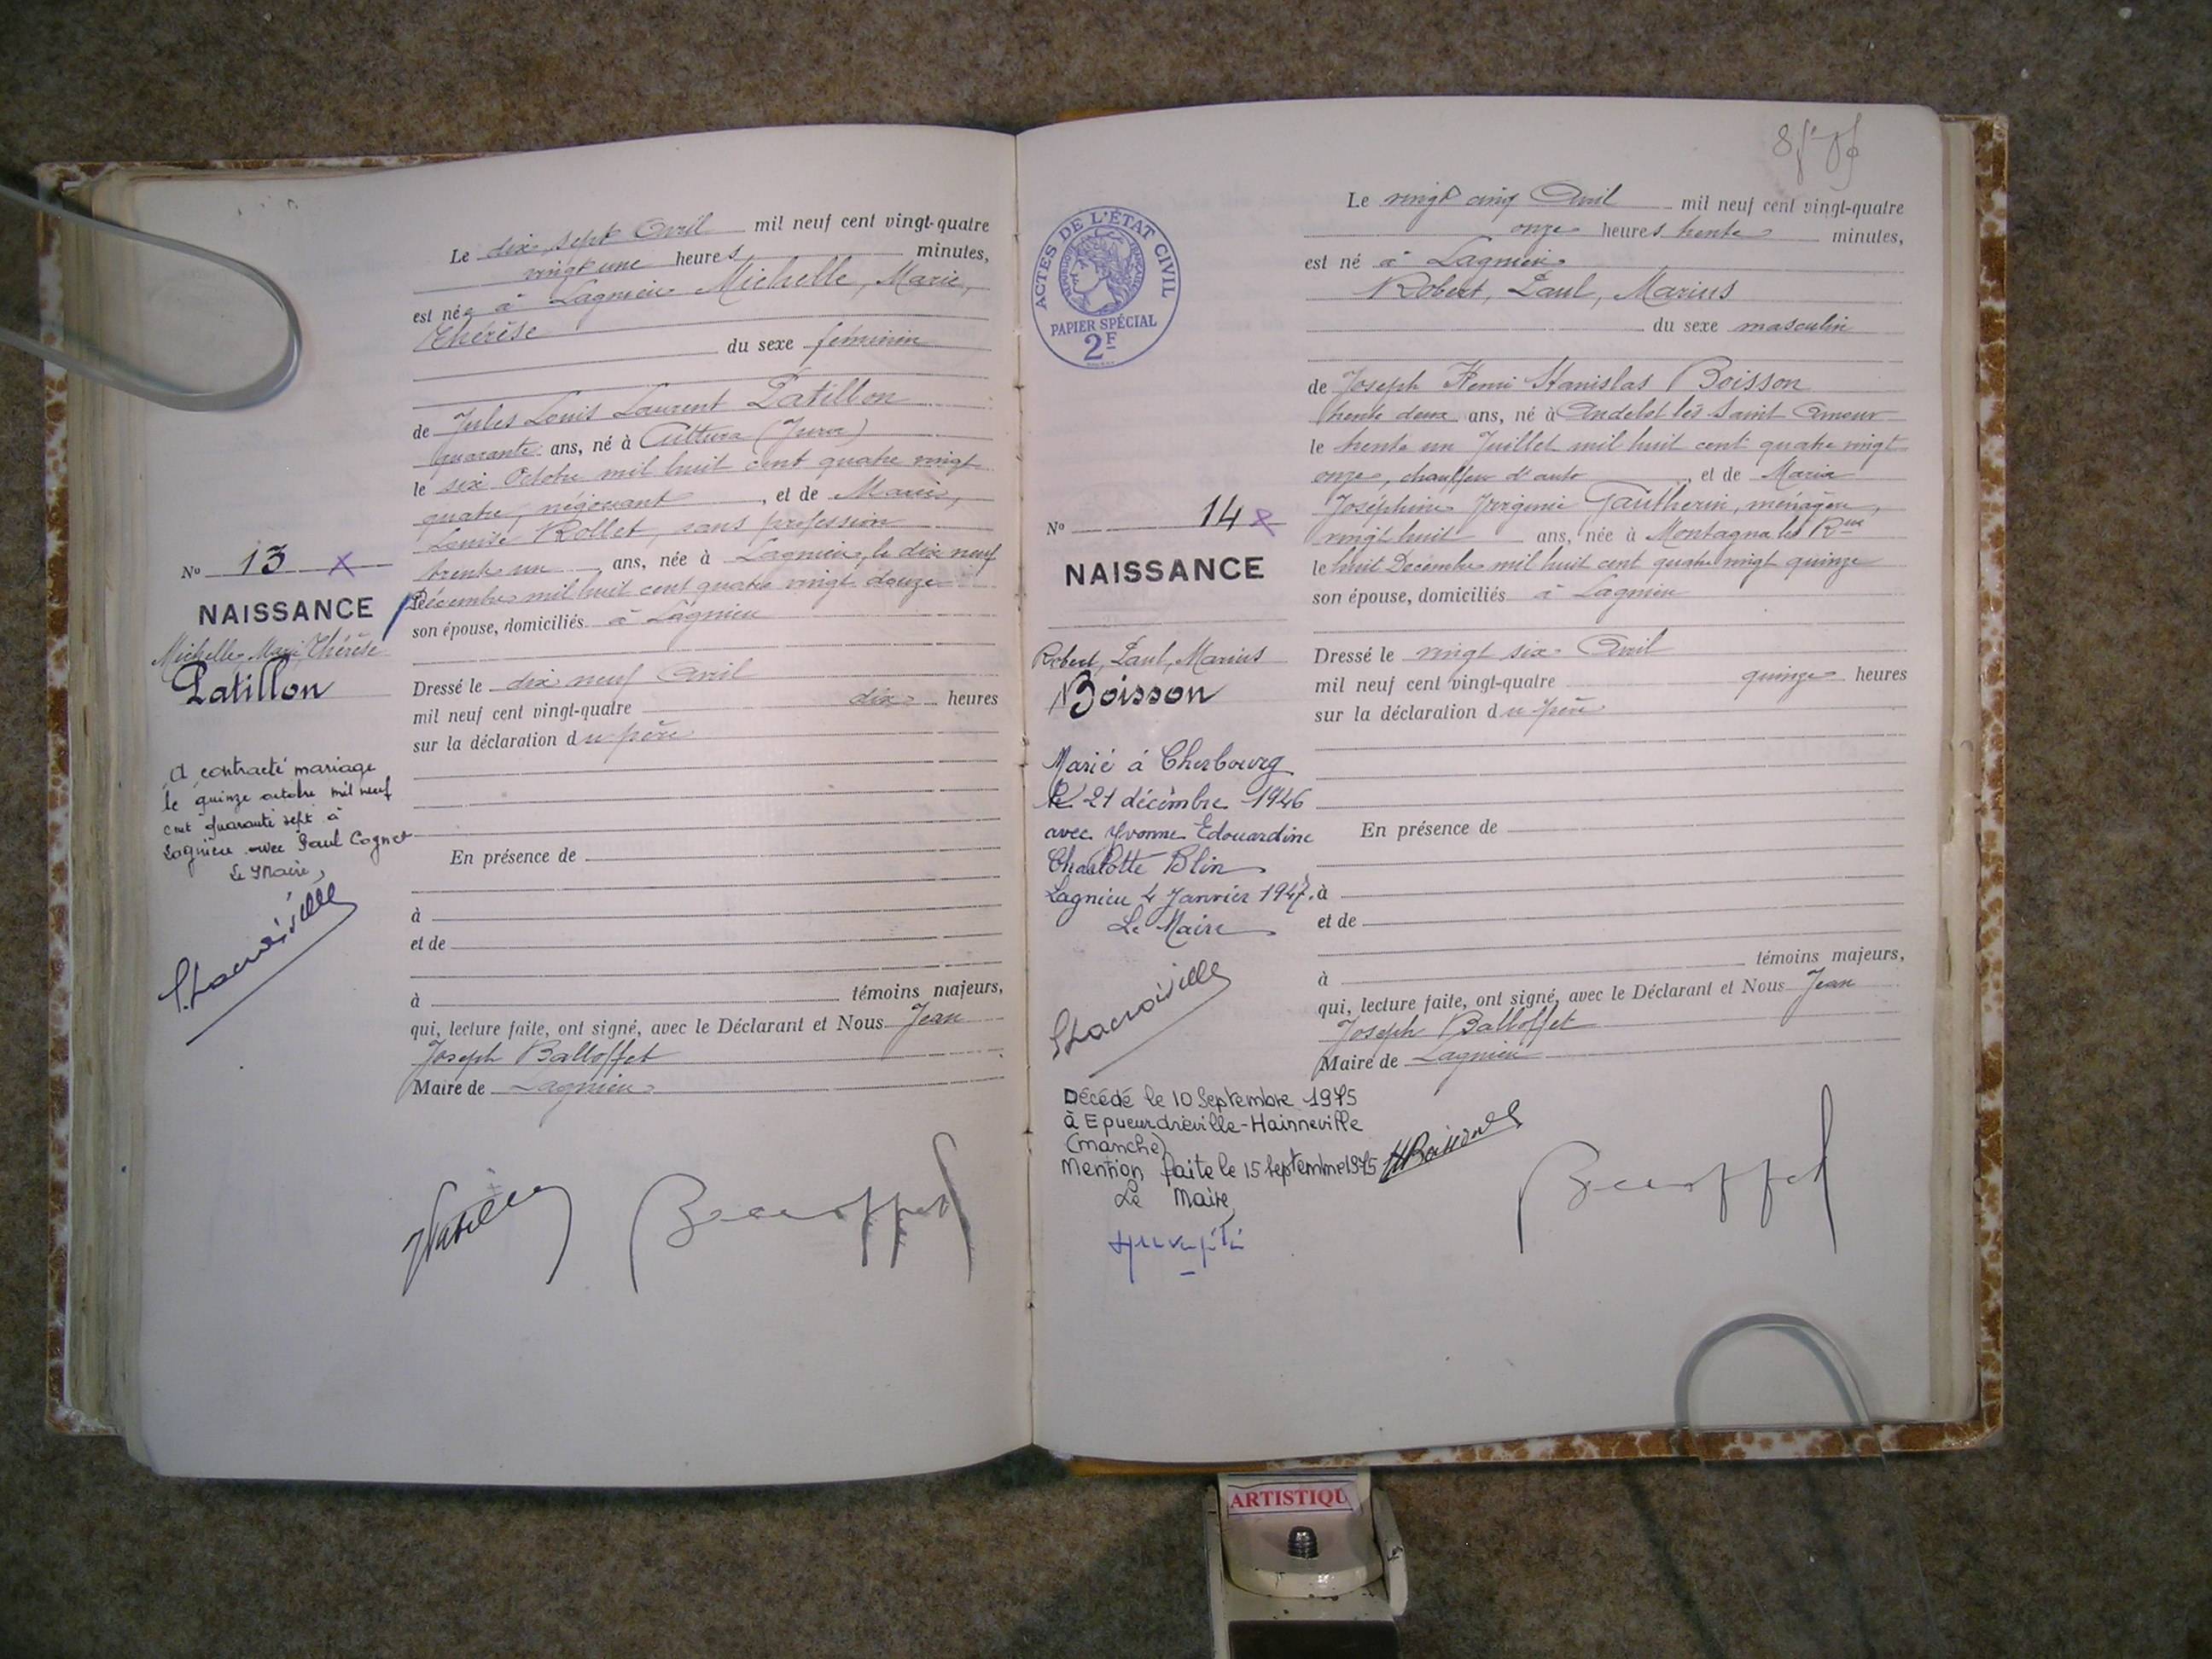 Le dix sept Avril mil neuf cent vingt-quatre
vingt une heures minutes,
est née à Lagnieu Michelle, Marie,
Thérèse
du sexe féminin
de Jules Louis Laurent Patillon
quarante ans, né à Cuttura (Jura)
le six Octobre mil huit cent quatre vingt
quatre, négociant, et de Marie,
Louise Rollet, sans profession
trente un ans, née à Lagnieu, le dix neuf
Décembre mil huit cent quatre vingt douze
son épouse, domiciliés à Lagnieu
Dressé le dix neuf Avril
mil neuf cent vingt-quatre dix heures
sur la déclaration du père
En présence de
à
et de
à témoins majeurs,
qui, lecture faite, ont signé, avec le Déclarant et Nous Jean
Joseph Balloffet
Maire de Lagnieu
No 13
NAISSANCE
Michelle Marie Thérèse
Patillon
A contracté mariage
le quinze octobre mil neuf
cent quarante sept à
Lagnieu avec Paul Cognet
Le Maire,
ACTES DE L'ÉTAT CIVIL
RÉPUBLIQUE FRANÇAISE
PAPIER SPÉCIAL
2F
Le vingt cinq Avril mil neuf cent vingt-quatre
onze heures trente minutes,
est né à Lagnieu
Robert, Paul, Marius
du sexe masculin
de Joseph Henri Stanislas Boisson
trente deux ans, né à Andelot les Saint Amour
le trente un Juillet mil huit cent quatre vingt
onze, chauffeur d'auto, et de Maria
Joséphine Virginie Gautherin, ménagère,
vingt huit ans, née à Montagna les Rme
le huit Décembre mil huit cent quatre vingt quinze
son épouse, domiciliés à Lagnieu
Dressé le vingt six Avril
mil neuf cent vingt-quatre quinze heures
sur la déclaration du père
En présence de
à
et de
à témoins majeurs,
qui, lecture faite, ont signé, avec le Déclarant et Nous Jean
Joseph Balloffet
Maire de Lagnieu
No 14
NAISSANCE
Robert, Paul, Marius
Boisson
Marié à Cherbourg
le 21 décembre 1946
avec Yvonne Edouardine
Charlotte Blin
Lagnieu 4 Janvier 1947.
Le Maire
Décédé le 10 Septembre 1975
à Equeurdréville-Hainneville
(manche)
Mention faite le 15 Septembre 1975
Le Maire
ARTISTIQU